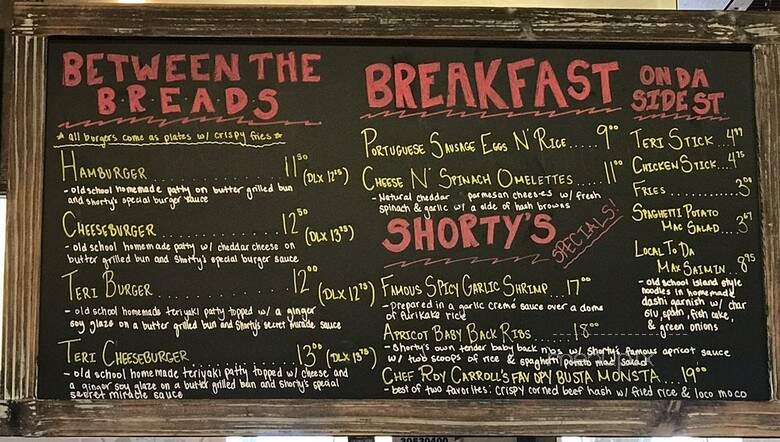 BETWEEN THE
B.R.E.A.D.S
* all burgers come as plates w/ crispy fries *
HAMBURGER 11⁵⁰ (DLX 12²⁵)
- old school homemade patty on butter grilled bun
and shorty's special burger sauce
CHEESEBURGER 12⁵⁰ (DLX 13²⁵)
- old school homemade patty w/ cheddar cheese on
butter grilled bun and Shorty's special burger sauce
TERI BURGER 12⁰⁰ (DLX 12⁷⁵)
- old school homemade teriyaki patty topped w/ a ginger
soy glaze on a butter grilled bun and Shorty's secret miracle sauce
TERI CHEESEBURGER 13⁰⁰ (DLX 13⁷⁵)
- old school homemade teriyaki patty topped w/ cheese and
a ginger soy glaze on a butter grilled bun and shorty's special
secret miracle sauce
BREAKFAST
PORTUGUESE SAUSAGE EGGS N' RICE..... 9⁰⁰
CHEESE N' SPINACH OMELETTES..... 11⁰⁰
- Natural cheddar parmesan cheeses w/ fresh
spinach & garlic w/ a side of hash browns
SHORTY'S
SPECIALS!
FAMOUS SPICY GARLIC SHRIMP...17⁰⁰
- prepared in a garlic creme sauce over a dome
of furikake rice
APRICOT BABY BACK RIBS 18⁰⁰
- Shorty's own tender baby back ribs w/ Shorty's famous apricot sauce
w/ two scoops of rice & spaghetti potato mac salad
CHEF ROY CARROLL'S FAV DPY BUSTA MONSTA...19⁰⁰
- best of two favorites: crispy corned beef hash w/ fried rice & loco moco
ON DA
SIDE ST
TERI STICK..4
CHICKEN STICK...4⁷⁵
FRIES
SPAGHETTI POTATO
MAC SALAD...3
LOCAL TO DA
MAX SAIMIN...8⁹⁵
- old school island style
noodles in homemade
dashi garnish w/ char
siu, spam, fish cake,
& green onions